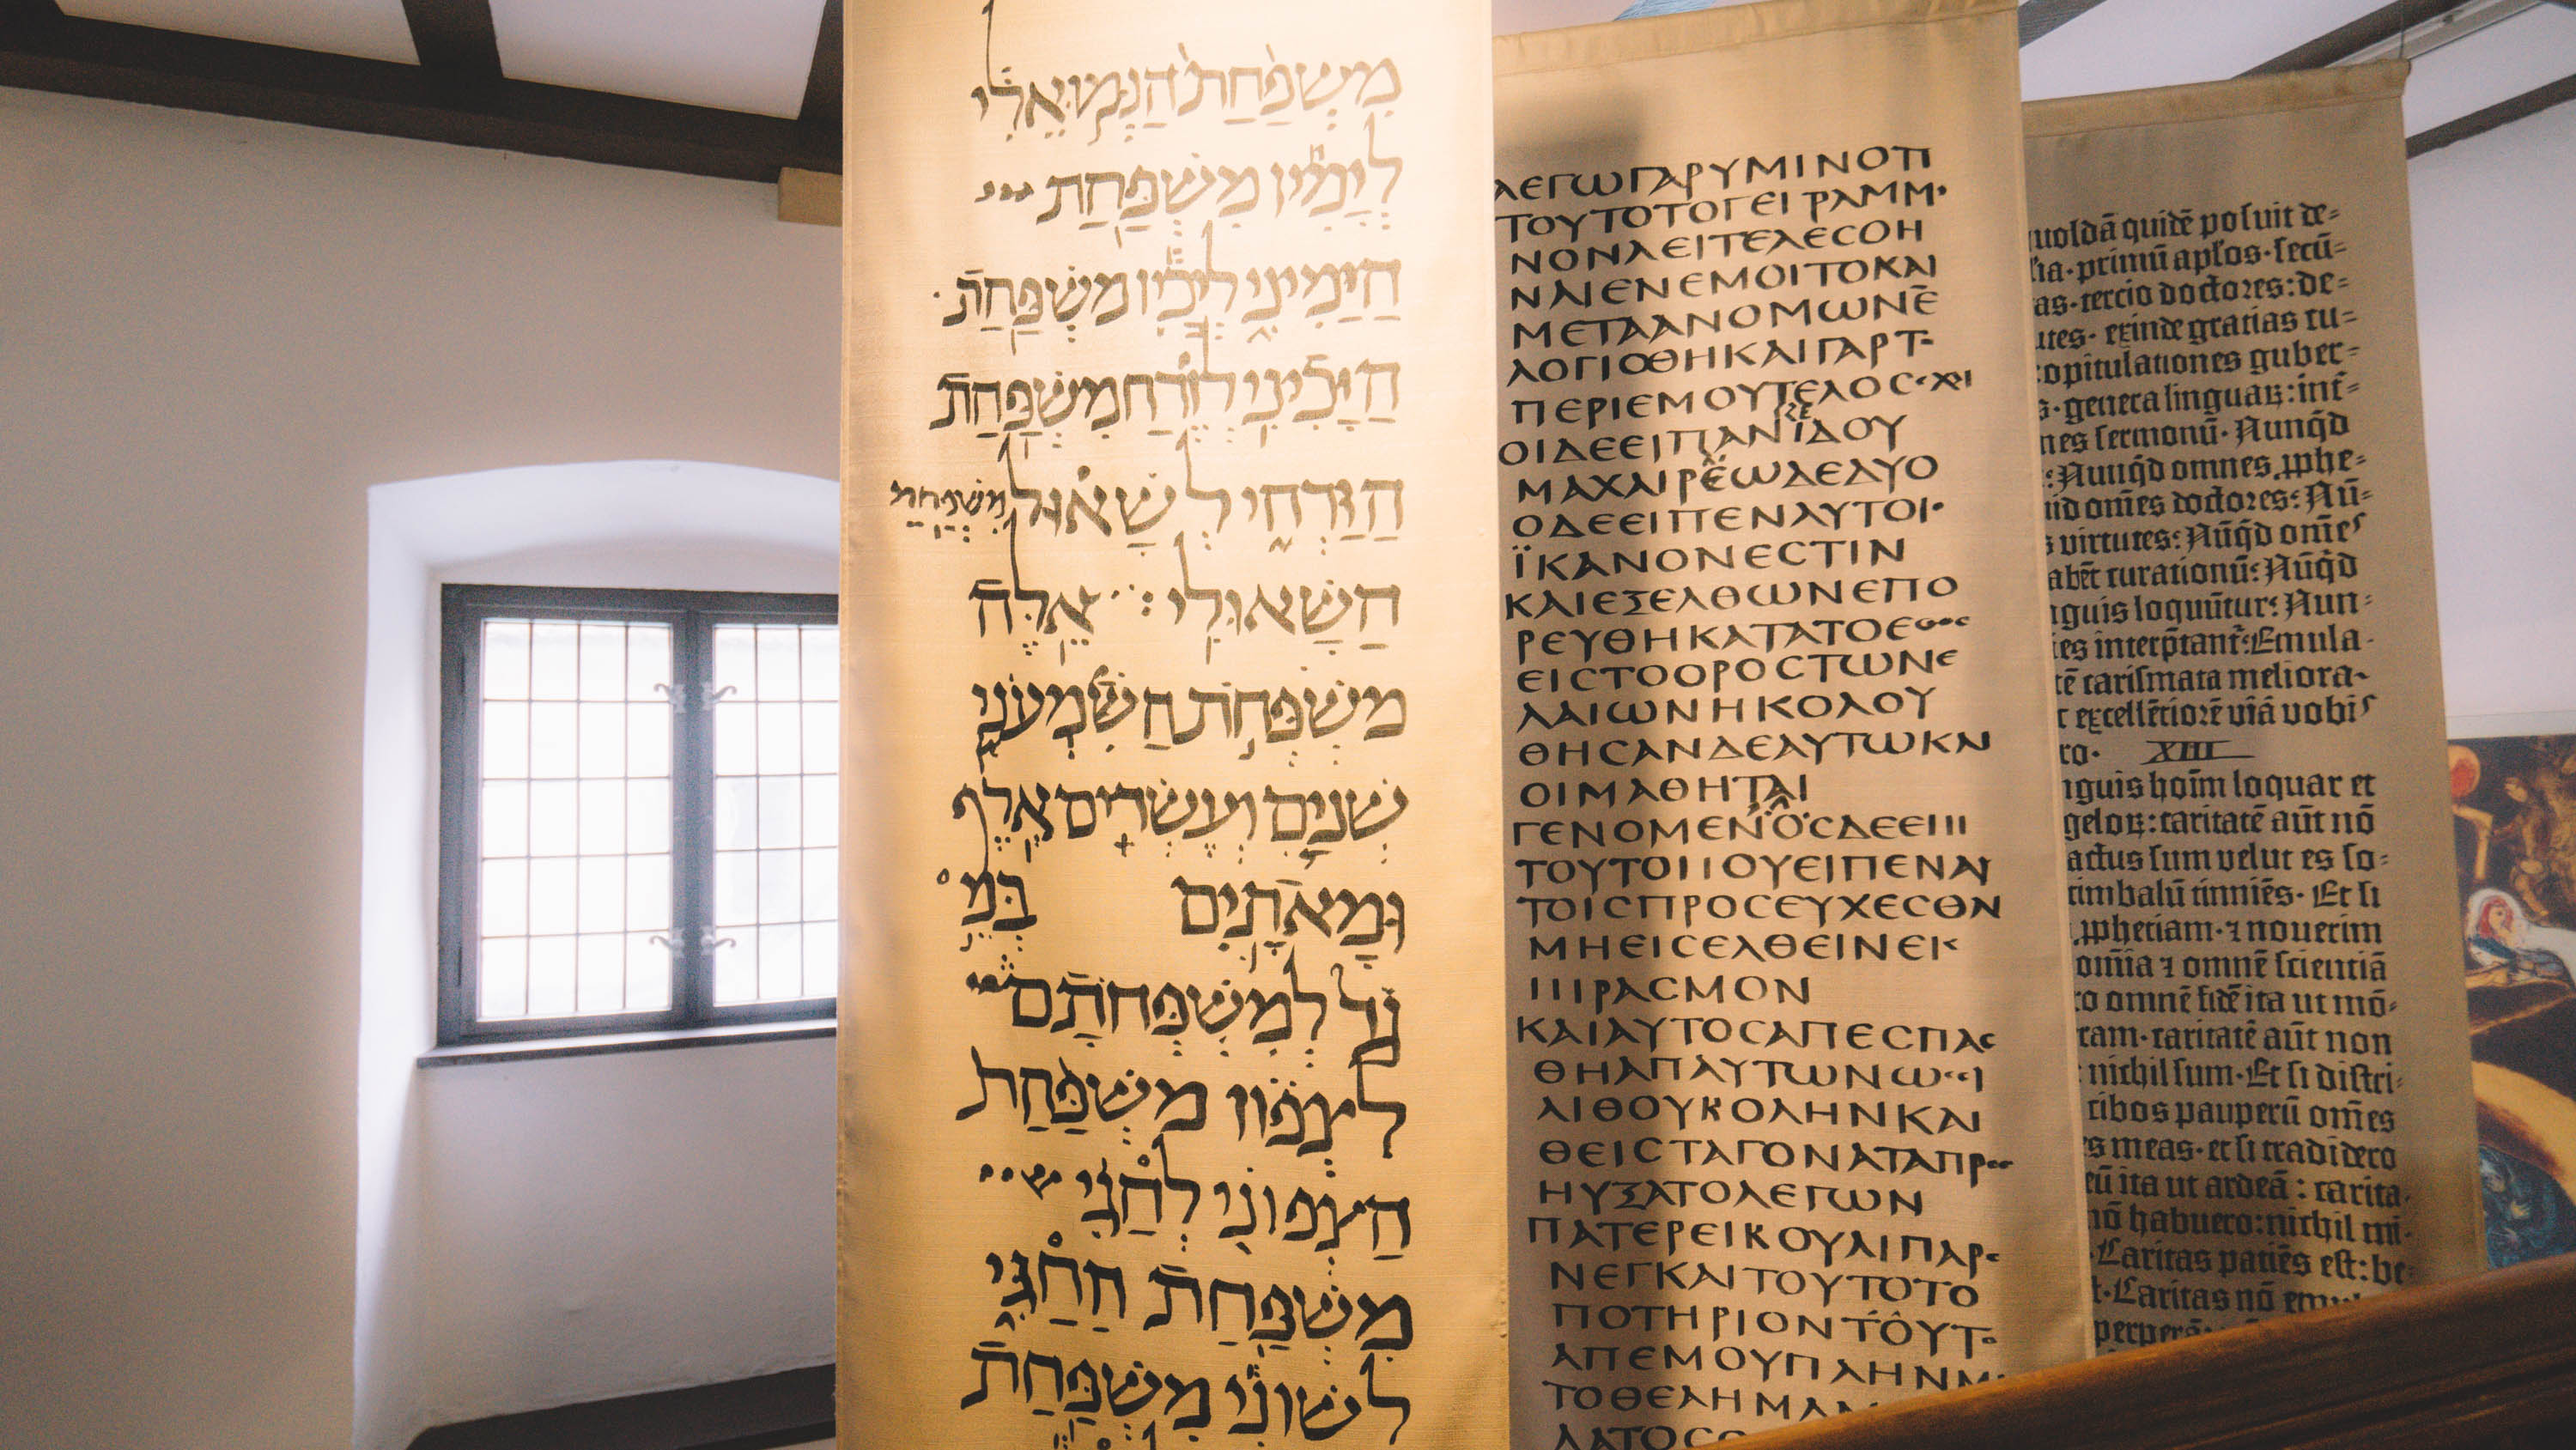 מִשְׁפַּחַת֙ הַנְּמ֣וּאֵלִ֔י
לְיָמִ֕ין מִשְׁפַּ֖חַת
הַיָּמִינִ֑י לְיָכִ֕ין מִשְׁפַּ֖חַת
הַיָּכִינִֽי לְזֶ֕רַח מִשְׁפַּ֖חַת
הַזַּרְחִ֑י לְשָׁא֕וּל מִשְׁפַּ֖חַת
הַשָּׁאוּלִֽי׃ אֵ֖לֶּה
מִשְׁפְּחֹ֣ת הַשִּׁמְעֹנִ֑י
שְׁנַ֧יִם וְעֶשְׂרִ֛ים אֶ֖לֶף
וּמָאתָֽיִם בְּנֵ֣י
גָד֮ לְמִשְׁפְּחֹתָם֒
לִצְפ֗וֹן מִשְׁפַּ֙חַת֙
הַצְּפוֹנִ֔י לְחַגִּ֕י
מִשְׁפַּ֖חַת הַֽחַגִּ֑י
לְשׁוּנִ֕י מִשְׁפַּ֖חַת
ΛΕΓΩΓΑΡΥΜΙΝΟΤΙ
ΤΟΥΤΟΤΟΓΕΓΡΑΜΜ·
ΝΟΝΔΕΙΤΕΛΕСΘΗ
ΝΑΙΕΝΕΜΟΙΤΟΚΑΙ
ΜΕΤΑΑΝΟΜΩΝΕ
ΛΟΓΙСΘΗΚΑΙΓΑΡΤ
ΠΕΡΙΕΜΟΥΤΕΛΟС
ΟΙΔΕΕΙΠΑΝΙΔΟΥ
ΜΑΧΑΙΡΕΩΔΕΔΥΟ
ΟΔΕΕΙΠΕΝΑΥΤΟΙ·
ΪΚΑΝΟΝΕСΤΙΝ
ΚΑΙΕΞΕΛΘΩΝΕΠΟ
ΡΕΥΘΗΚΑΤΑΤΟΕΘΟС
ΕΙСΤΟΟΡΟСΤΩΝΕ
ΛΑΙΩΝΗΚΟΛΟΥ
ΘΗСΑΝΔΕΑΥΤΩΚΑΙ
ΟΙΜΑΘΗΤΑΙ
ΓΕΝΟΜΕΝΟСΔΕΕΠΙ
ΤΟΥΤΟΠΟΥΕΙΠΕΝΑΥ
ΤΟΙСΠΡΟСΕΥΧΕСΘΑΙ
ΜΗΕΙСΕΛΘΕΙΝΕΙС
ΠΙΡΑСΜΟΝ
ΚΑΙΑΥΤΟСΑΠΕСΠΑС
ΘΗΑΠΑΥΤΩΝΩСΙ
ΛΙΘΟΥΚΟΛΗΝΚΑΙ
ΘΕΙСΤΑΓΟΝΑΤΑΠΡΟС
ΗΥΞΑΤΟΛΕΓΩΝ
ΠΑΤΕΡΕΙΚΟΥΛΙΠΑΡΕ
ΝΕΓΚΑΙΤΟΥΤΟΤΟ
ΠΟΤΗΡΙΟΝΤΟΥΤΟ
ΑΠΕΜΟΥΠΛΗΝΜ
ΤΟΘΕΛΗΜΑΜ
uoſdā quidē poſuit de-
ſia· primū apl'os· ſecū-
as· tercio doctores: de-
utes· exinde gratias cu-
opitulationes guber-
s· genera linguaꝝ: int̄-
nes ſermonū· Nunqd̄
: Nunqd̄ omnes ꝓphe-
uid om̄es doctores: Nū-
s virtutes: Nūqd̄ om̄es
abēt curationū: Nūqd̄
nguis loquūtur: Nun-
es interp̄tant̄: Emula-
tē cariſmata meliora·
t excellētiorē viā vobis
ro· XIII
nguis hoīm loquar et
geloꝝ: caritatē aūt nō
actus ſum velut es ſo-
cimbalū tinniēs· Et ſi
ꝓphetiam· ⁊ nouerim
om̄ia ⁊ omnē ſcientiā
ro omnē fidē ita ut mō-
ram· caritatē aūt non
nichil ſum· Et ſi diſtri-
cibos pauperū om̄es
s meas· et ſi tradidero
eū ita ut ardeā: carita-
nō habuero: nichil mi-
· Caritas patiēs eſt: be-
t· Caritas nō emul
perperā